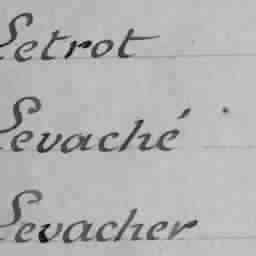 Letrot
Levaché
Levacher